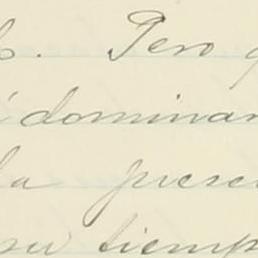 . Pero
dominan
la prese
su tiemp